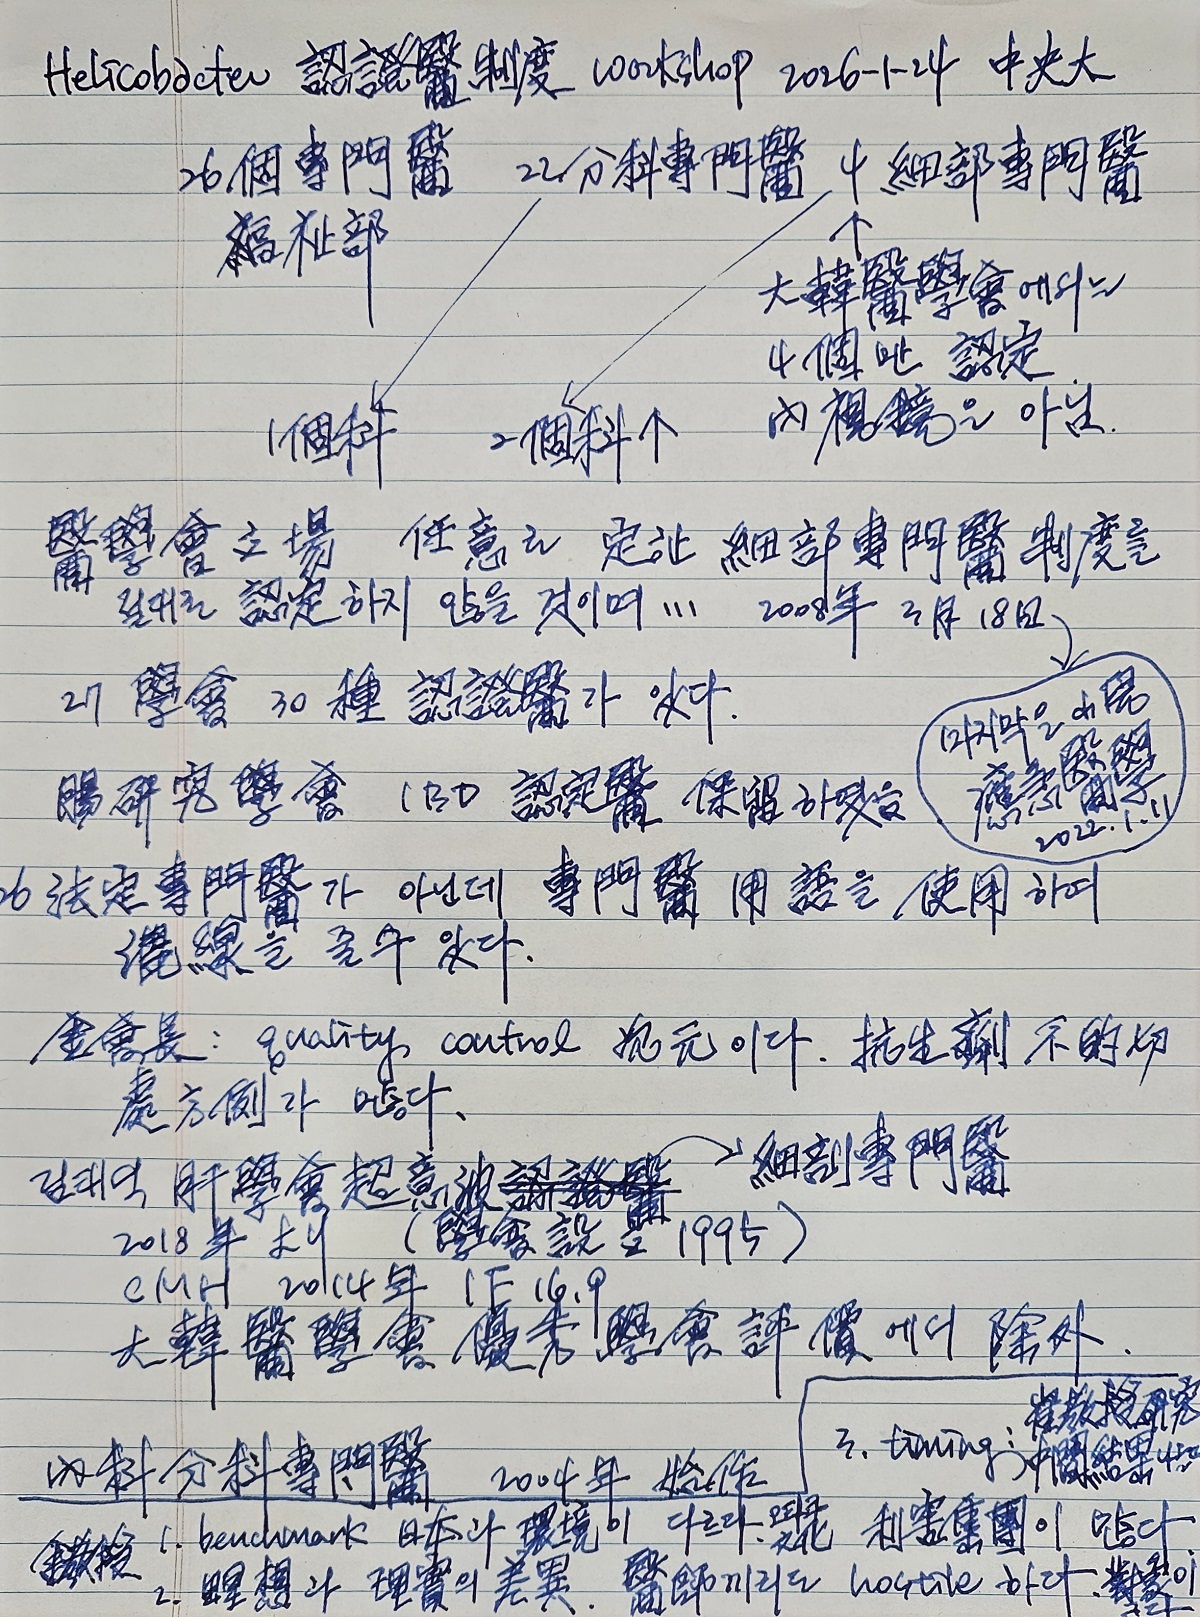 Helicobacter 認證醫制度 workshop 2026-1-24 中央大
26個專門醫 22分科專門醫 4細部專門醫
福祉部
大韓醫學會에서는
4個만 認定
內視鏡은 아님.
1個科 2個科↑
醫學會立場 任意로 定한 細部專門醫制度를
절대로 認定하지 않을 것이며 ... 2008年 3月 18日
27 學會 30種 認證醫가 있다.
마지막은 마취
應急醫學
2022.1.11
腸硏究學會 IBD 認定醫 保留하였음
26 法定專門醫가 아닌데 專門醫用語를 使用하여
混線을 줄수 있다.
金會長: quality control 次元이다. 抗生劑 不的切
處方例가 많다.
김태억 肝學會超音波認證醫 → 細部專門醫
2018年 より (學會設立 1995)
CMH 2014年 IF 16.9
大韓醫學會優秀學會評價에서 除外.
內科分科專門醫 2004年 始作
3. timing: 崔敎授硏究
中間結果
金敎授 1. benchmark 日本과 環境이 다르다. 文化 利害集團이 많다
2. 理想과 現實의 差異. 醫師끼리도 hostile 하다.